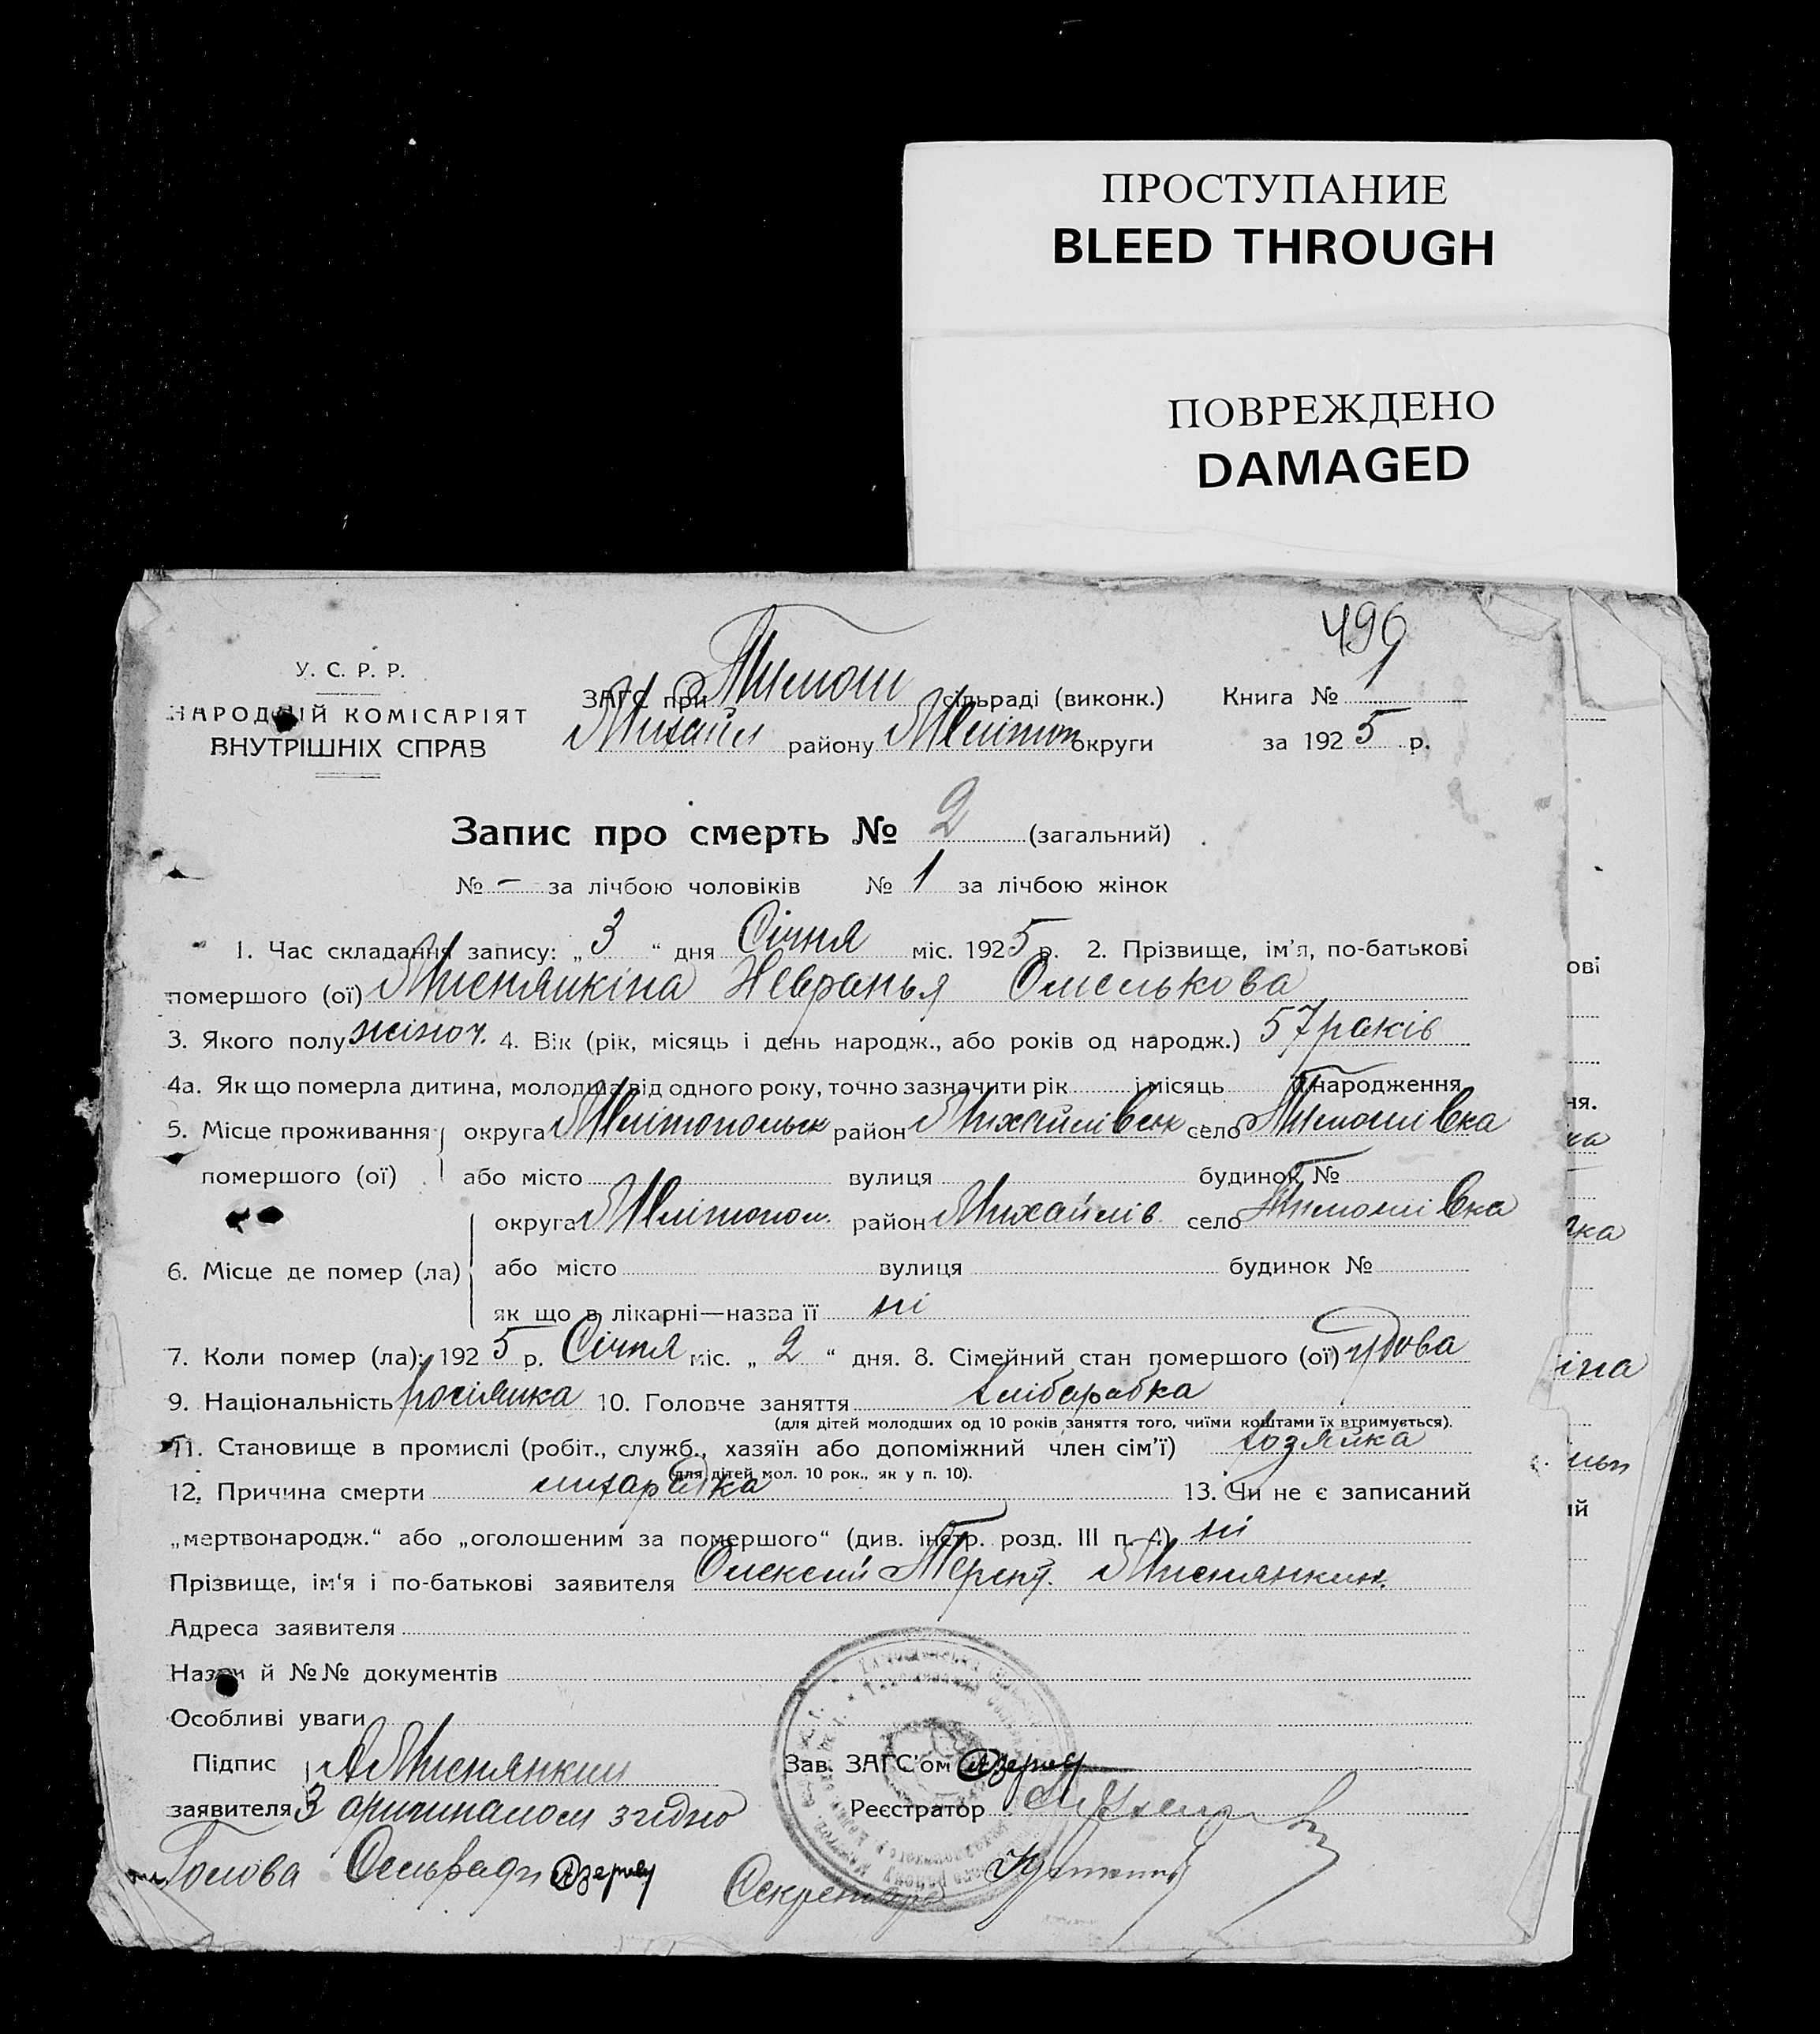 ПРОСТУПАНИЕ
BLEED THROUGH
ПОВРЕЖДЕНО
DAMAGED
496
У. С. Р. Р.
НАРОДНІЙ КОМІСАРІЯТ
ВНУТРІШНІХ СПРАВ
ЗАГС при Тимош сільраді (виконк.)
Михайл району Мелітоп округи
Книга №
за 1925 р.
Запис про смерть № 2 (загальний)
№ — за лічбою чоловіків № 1 за лічбою жінок
1. Час складання запису: „3“ дня Січня міс. 1925 р. 2. Прізвище, ім'я, по-батькові
помершого (ої) Омелькова
3. Якого полу жіноч. 4. Вік (рік, місяць і день народж., або років од народж.) 57 років
4а. Як що померла дитина, молодша від одного року, точно зазначити рік і місяць її народження
5. Місце проживання помершого (ої) округа Мелітопольск район Михайлівськ село Тимошівка
або місто вулиця будинок №
6. Місце де помер (ла) округа Мелітопол. район Михайлів село Тимошівка
або місто вулиця будинок №
як що в лікарні—назва її ні
7. Коли помер (ла): 1925 р. Січня міс. „2“ дня. 8. Сімейний стан помершого (ої) удова
9. Національність росіянка 10. Головне заняття хліборобка
(для дітей молодших од 10 років заняття того, чиїми коштами їх втримується).
11. Становище в промислі (робіт., служб., хазяїн або допоміжний член сім'ї) хозяйка
(для дітей мол. 10 рок., як у п. 10).
12. Причина смерти лихорадка 13. Чи не є записаний
„мертвонародж.“ або „оголошеним за помершого“ (див. інстр. розд. III п. 4) ні
Прізвище, ім'я і по-батькові заявителя Олексій Терент.
Адреса заявителя
Назви й №№ документів
Особливі уваги
Підпис заявителя
Зав. ЗАГС'ом
Реєстратор
З оригиналом згідно
Голова Сельради
Секретарь